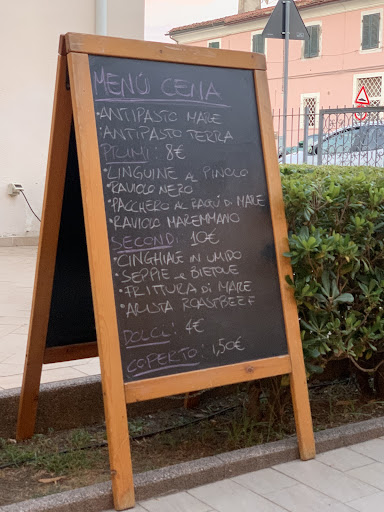 MENÚ CENA
• ANTIPASTO MARE
• ANTIPASTO TERRA
PRIMI: 8€
• LINGUINE AL PINOLO
• RAVIOLO NERO
• PACCHERO AL RAGÚ DI MARE
• RAVIOLO MAREMMANO
SECONDI 10€
• CINGHIALE IN UMIDO
• SEPPIE e BIETOLE
• FRITTURA di MARE
• ARISTA ROASTBEEF
DOLCI: 4€
COPERTO: 1,50€